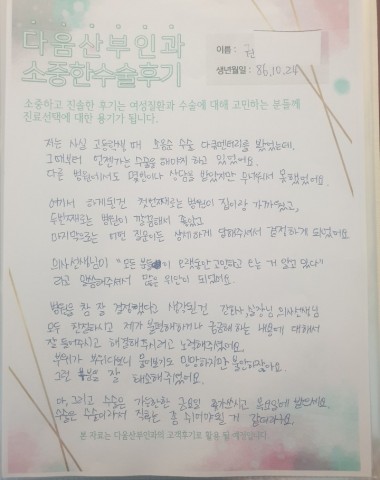 다움산부인과
소중한수술후기
이름: 권
생년월일: 86.10.24
소중하고 진솔한 후기는 여성질환과 수술에 대해 고민하는 분들께
진료선택에 대한 용기가 됩니다.
저는 사실 고등학생 때 소음순 수술 다큐멘터리를 봤었는데,
그때부터 언젠가는 수술을 해야지 하고 있었어요.
다른 병원에서도 몇번이나 상담을 받았지만 무서워서 못했었어요.
여기서 하게된건 첫번째로는 병원이 집이랑 가까웠고,
두번째로는 병원이 깔끔해서 좋았고
마지막으로는 어떤 질문이든 상세하게 답해주셔서 결정하게 되었어요.
의사선생님이 "모든 분들이 오랫동안 고민하고 오는 거 알고 있다"
라고 말씀해주셔서 많은 위안이 되었어요.
병원을 참 잘 결정했다고 생각된건 간호사, 실장님, 의사선생님
모두 친절하시고 제가 불편해하거나 궁금해 하는 내용에 대해서
잘 들어주시고 해결해주시려고 노력해주셨어요.
부위가 부위다보니 물어보기도 민망하지만 불안하잖아요.
그런 부분을 잘 해소해주셨어요.
아, 그리고 수술은 가능하면 금요일 휴가쓰시고 목요일에 받으세요.
수술은 수술이라서 적어도 좀 쉬어야될 거 같더라구요.
본 자료는 다움산부인과의 고객후기로 활용 될 예정입니다.